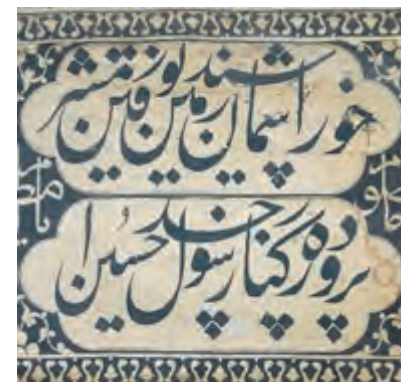 خورشید آسمان و زمین نور مشرقین
پرورده کنار رسول خدا حسین